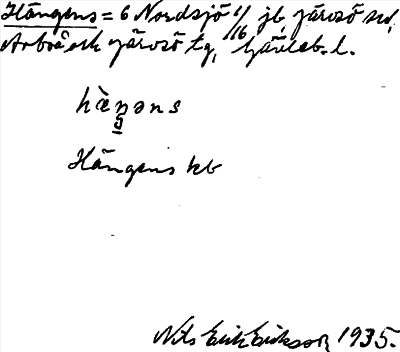 Hängens = 6 Nordsjö 1/1 jb, järvsö sn,
Arbrå och järvsö tg, 16 Gävleb. l.
hæ̀ŋəns
Hängens kb
Nils Erik Eriksson 1935.